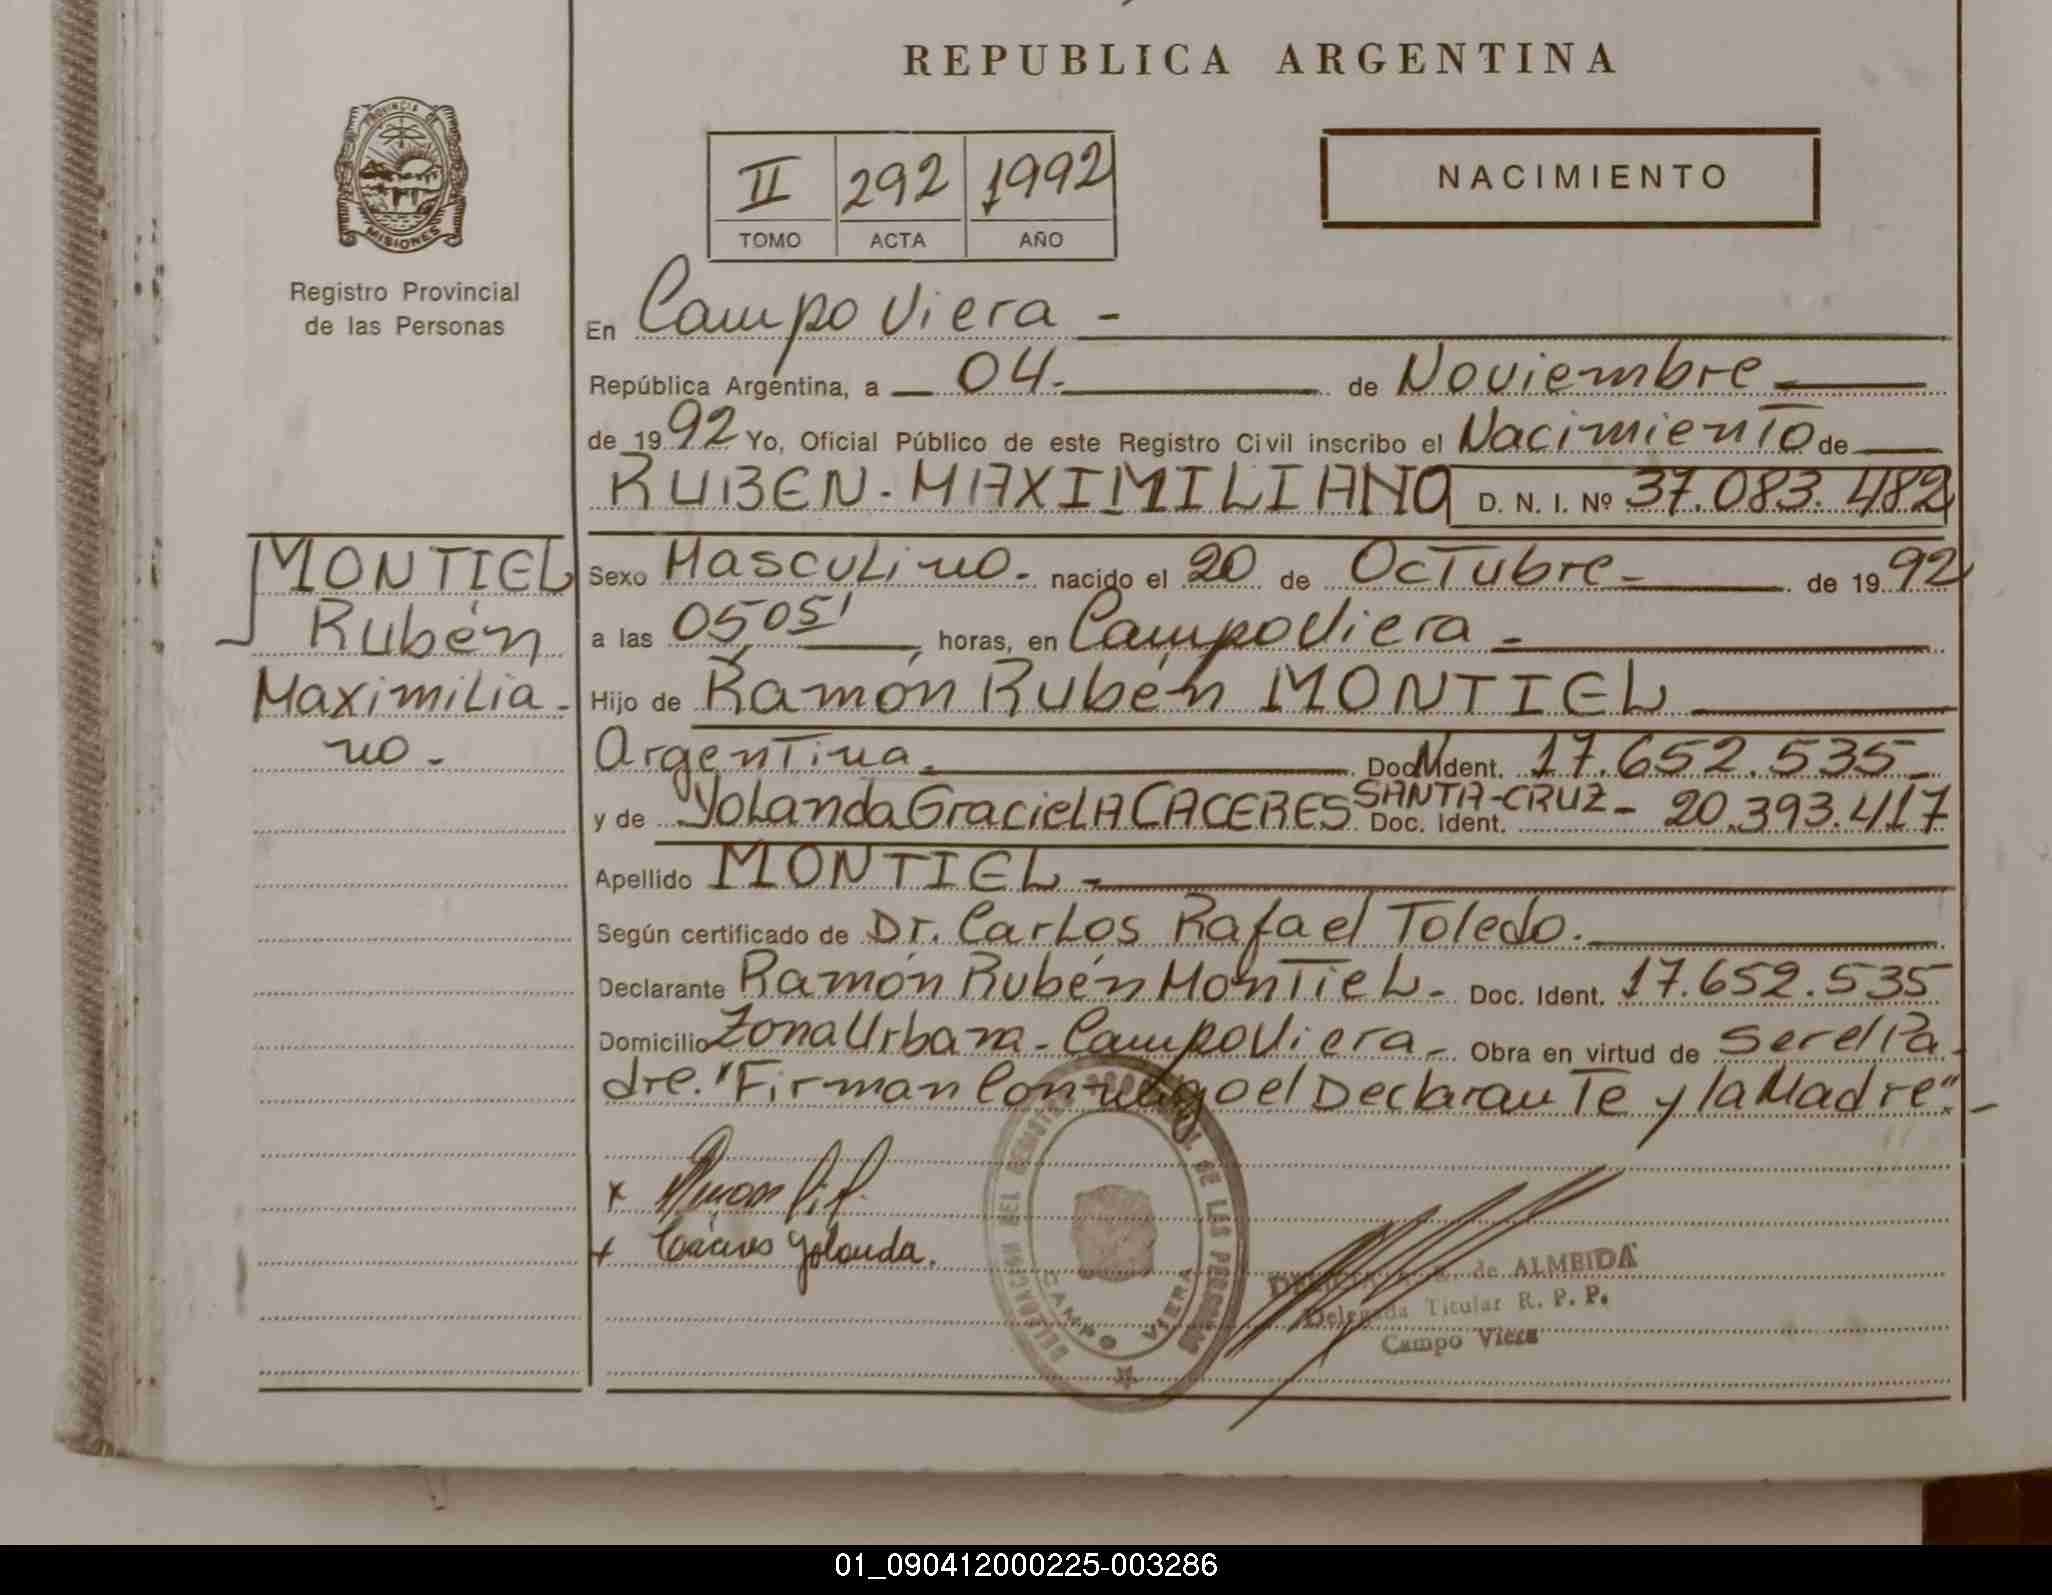 REPUBLICA ARGENTINA
PROVINCIA DE
MISIONES
Registro Provincial
de las Personas
II 292 1992
TOMO ACTA AÑO
NACIMIENTO
En Campo Viera -
República Argentina, a 04.- de Noviembre
de 1992 Yo, Oficial Público de este Registro Civil inscribo el Nacimiento de
RUBEN - MAXIMILIANO D. N. I. Nº 37.083.482
MONTIEL
Rubén
Maximilia-
no.
Sexo Masculino - nacido el 20 de Octubre - de 1992
a las 05,05' horas, en Campo Viera -
Hijo de Ramón Rubén MONTIEL
Argentina. Doc. Ident. 17.652.535-
y de Yolanda Graciela CACERES SANTA-CRUZ - Doc. Ident. 20.393.417
Apellido MONTIEL -
Según certificado de Dr. Carlos Rafael Toledo.
Declarante Ramón Rubén Montiel - Doc. Ident. 17.652.535
Domicilio Zona Urbana - Campo Viera - Obra en virtud de ser el Pa-
dre. "Firman Conmigo el Declarante y la Madre".-
x
x Cáceres Yolanda.
DE LAS PERSONAS
CAMPO VIERA
de ALMEIDA
Delegada Titular R. P. P.
Campo Viera
01_090412000225-003286